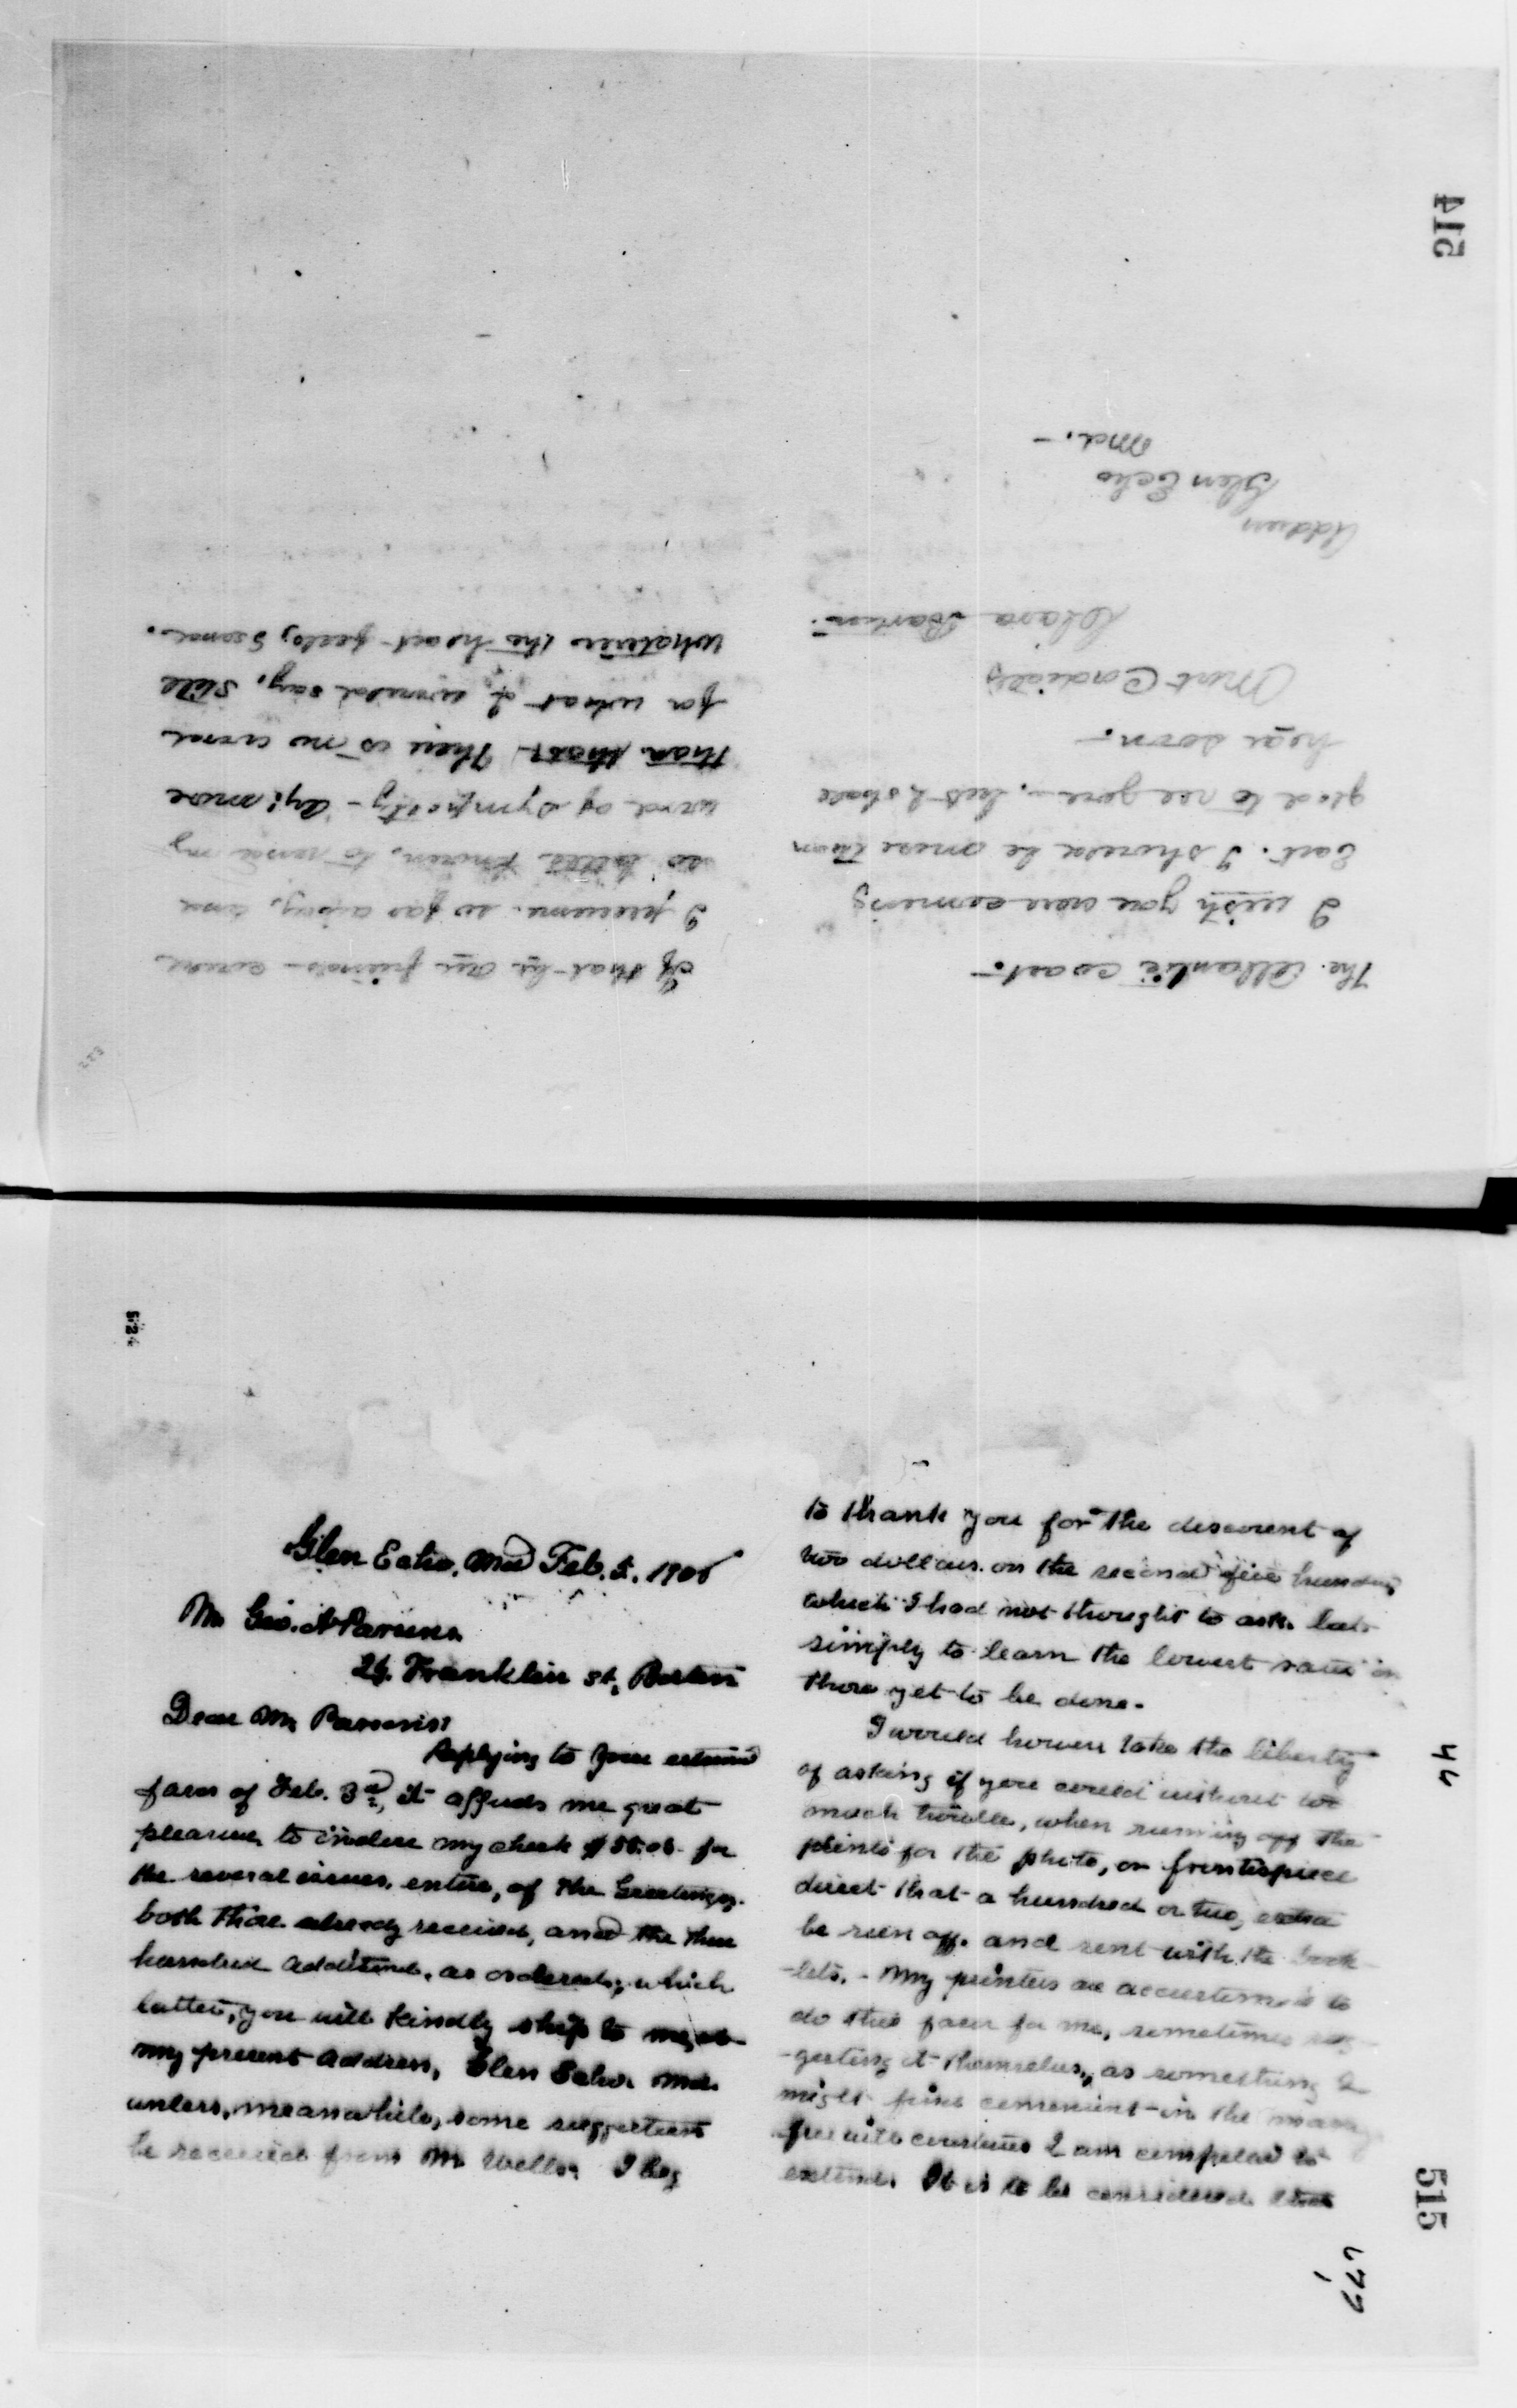 514
The Atlantic coast.-
I wish you were coming
East. I should be more than
glad to see you.- but I shall
hear soon.-
Most Cordially
Clara Barton.
Address
Glen Echo
Md. -
If that by our friends - could
I presume. so far away, and
so little known, to send my
word of sympathy - Ay! more
than that. There is no word
for what I would say. Still
Whatever the heart feels, I send.
Glen Echo. Md Feb. 5. 1906
Mr Geo. A Parsons.
24. Franklin st. Boston
Dear Mr. Parsons:
Replying to your esteemed
favor of Feb. 3rd, it affords me great
pleasure to inclose my check for
the several issues, entire, of the Greetings.
both those already received, and the three
hundred additional, as ordered; which
latter, you will kindly ship to me, at
my present address, Glen Echo. Md.
unless, meanwhile, some suggestions
be received from Mr Wells. I beg
to thank you for the discount of
two dollars. on the second five hundred,
which I had not thought to ask. but
simply to learn the lowest rates on
those yet to be done.
I would however take the liberty
of asking if you could without too
much trouble, when running off the
prints for the photo, or frontispiece
direct that a hundred or two, extra
be run off. and sent with the book
-lets. - My printers are accustomed to
do this favor for me, sometimes sug-
-gesting it themselves, as something I
might find convenient in the many
courtesies I am compelled to
extend. It is to be considered that
44
515